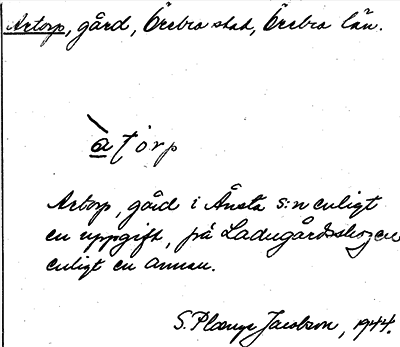 Artorp, gård, Örebro stad, Örebro län.
àtorp
Artorp, gård i Ånsta s:n enligt
en uppgift, på Ladugårdsskogen
enligt en annan.
S. Jacobson, 1944.